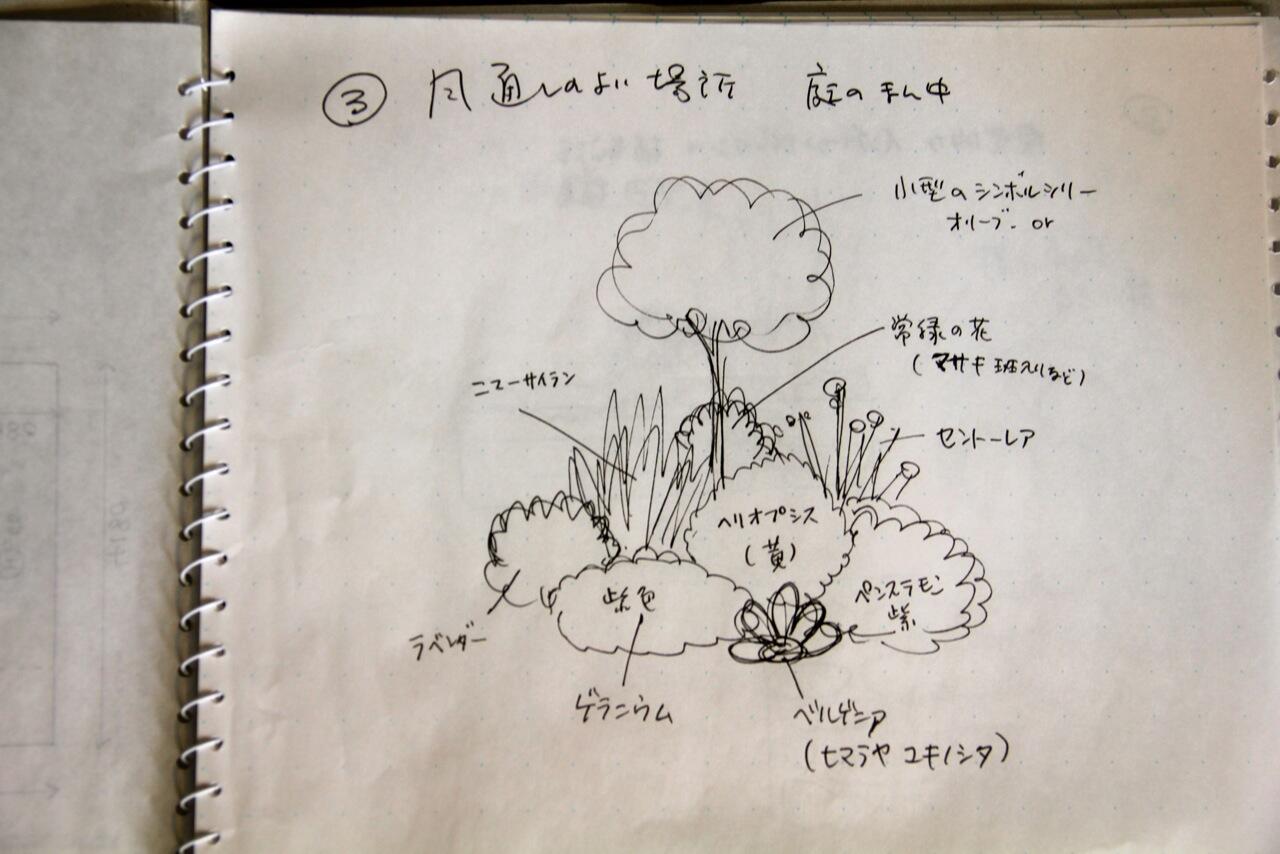 ③ 風通しのよい場所 庭の まん中
小型のシンボルツリー
オリーブ. or
常緑の花
(マサキ 斑入りなど)
ニューサイラン
セントーレア
ヘリオプシス
(黄)
紫色
ペンステモン
紫
ラベンダー
ゲラニウム
ベルゲニア
(ヒマラヤ ユキノシタ)